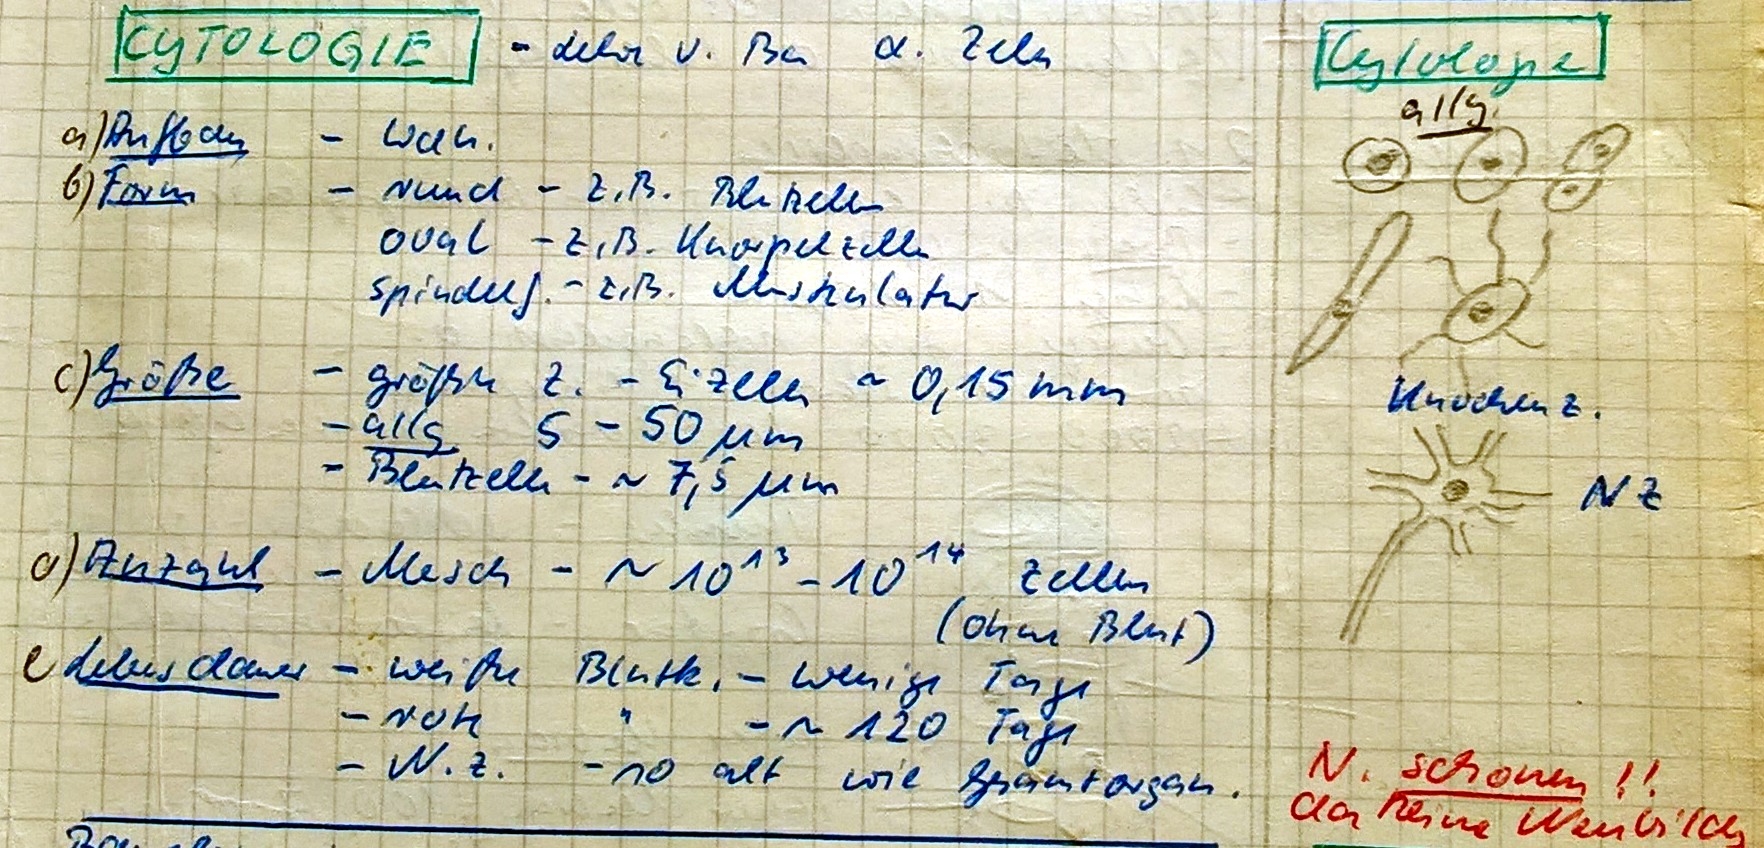 CYTOLOGIE - Lehre v. Bau d. Zelle
a) Aufbau -
b) Form - rund - z.B. Blutzellen
oval - z.B. Knorpelzellen
spindelf. - z.B. Muskulatur
c) Größe - größte Z. - Eizelle ~ 0,15 mm
- allg 5 - 50 µm
- Blutzellen - ~ 7,5 µm
d) Anzahl - Mesch - ~ 10¹³ - 10¹⁴ Zellen
(ohne Blut)
e Lebensdauer - weiße Blutk. - wenige Tage
- rote " - ~ 120 Tage
- N.z. - so alt wie Gesamtorgan.
Cytologie
allg.
Knochenz.
NZ
N. schonen!!
da keine Neubild